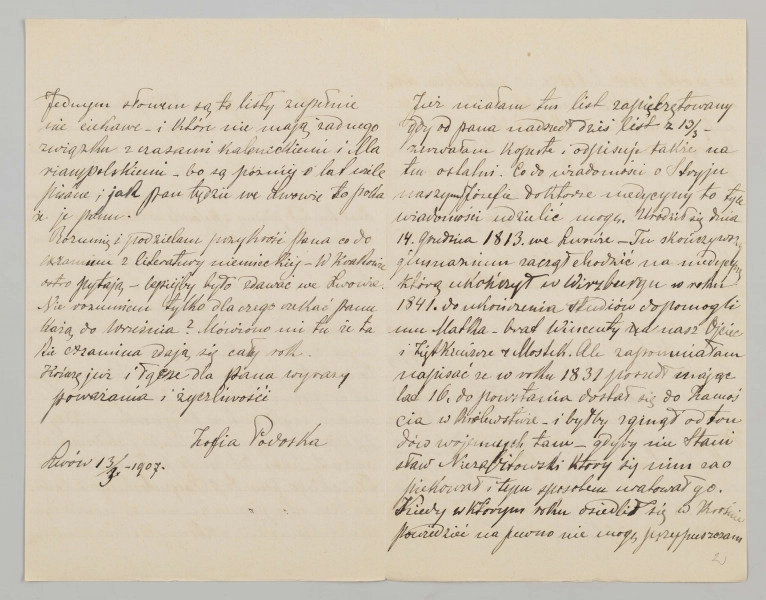 Jednym słowem są to listy zupełnie
nie ciekawe – i które nie mają żadnego
związku z czasami Kalenickiemi i Ma
ryampolskiemi – bo są później o lat wiele
pisane; jak pan będzie we Lwowie to poka
że je panu.
Rozumię i podzielam przykrość pana co do
examinu z literatury niemieckiej – W Krakowie
ostro pytają – lepiejby było zdawać we Lwowie.
Nie rozumiem tylko dlaczego czekać panu
każą do Września? Mówiono mi tu że ta
kie examina zdają się cały rok.
Kończę już i łączę dla pana wyrazy
poważania i życzliwości
Zofia Podoska
Lwów 13/3 – 1907.
Już miałam ten list zapieczętowany
gdy od pana nadszedł dziś list z 13/3 –
zerwałam kopertę i odpisuję także na
ten ostatni. Co do wiadomości o Stryju
naszym Józefie doktorze medycyny to tyle
wiadomości udzielić mogę. Urodził się dnia
14. grudnia 1813. we Lwowie – Tu skończywszy
gimnazium zaczął chodzić na medycynę
którą ukończył w Wirzburgu w roku
1841. do ukończenia studiów dopomogli
mu Matka – brat Wincenty nasz Ojciec
i z Mostek. Ale zapomniałam
napisać że w roku 1831 poszedł mając
lat 16. do powstania dostał się do Zamoś
cia w Królewstwie – i byłby zginął od tru
dów wojennych tam – gdyby nie Stani
sław Niezabitowski który się nim zao
piekował i tym sposobem uratował go.
Kiedy w którym roku osiedlił się w Krośnie
powiedzieć na pewno nie mogę, przypuszczam
2)